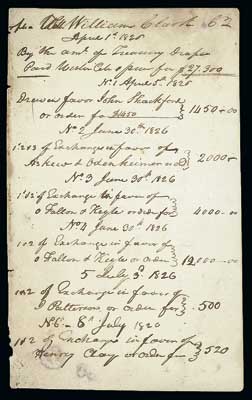 William Clark 62
April 1st 1826
By the amt of Treasury Drafts
for $27,300
No 1 April 5th 1826
Drew in favor John Shackford
or order for $1450 } 1450-00
No 2 June 30th 1826
1 2 & 3 of Exchange in favor of
Askew & } 2000-
No 3 June 30th 1826
1st & 2 of Exchange in favor of
O Fallon & Keyte or order for } 4000-00
No 4 June 30th 1826
1 & 2 of Exchange in favor of
O Fallon & Keyte or order } 12,000-00
5 July 3d 1826
1 & 2 of Exchange in favor of
J Patterson or order for } 500
No 6 - 6th July 1826
1 & 2 of Exchange in favor of
Henry Clay or order for } 520